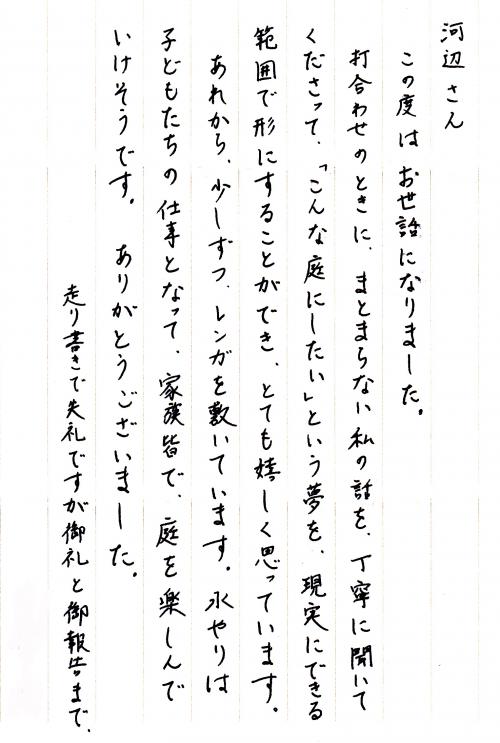 河辺さん
この度はお世話になりました。
打合わせのときに、まとまらない私の話を、丁寧に聞いて
くださって、「こんな庭にしたい」という夢を、現実にできる
範囲で形にすることができ、とても嬉しく思っています。
あれから、少しずつ、レンガを敷いています。水やりは
子どもたちの仕事となって、家族皆で、庭を楽しんで
いけそうです。ありがとうございました。
走り書きで失礼ですが御礼と御報告まで、